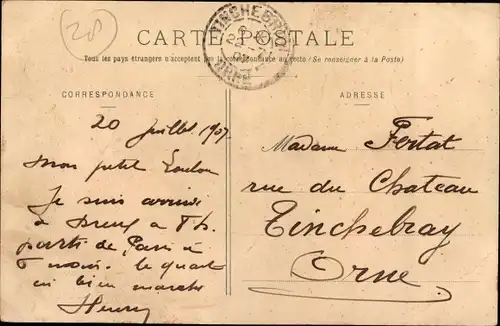 20
CARTE POSTALE
TINCHEBRAY
ORNE
Tous les pays étrangers n'acceptent pas la correspondance au recto (Se renseigner à la Poste)
CORRESPONDANCE
ADRESSE
20 Juillet 1907
Mon petit Loulou
Je suis arrivé
à Dreux à 8 h.
parti de Paris à
le quart
bien marché
Henry
Madame Fertat
rue du Chateau
Tinchebray
Orne